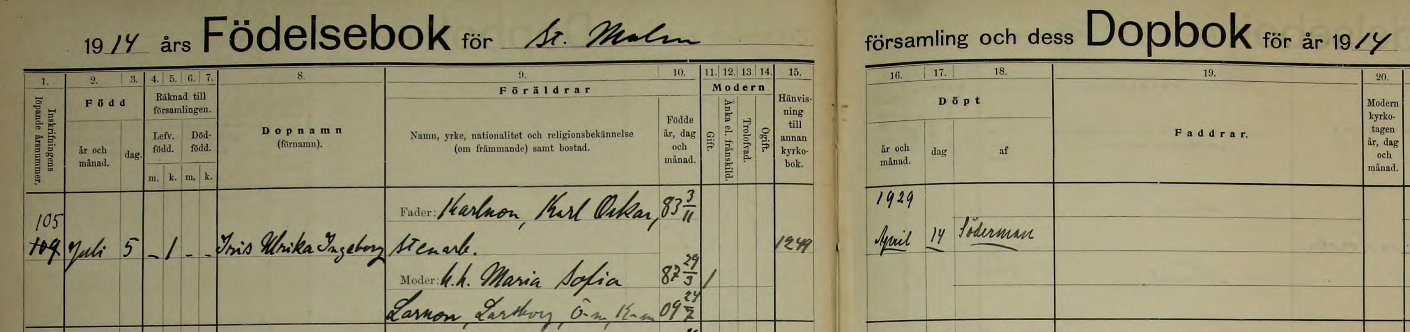 1914 års Födelsebok för St. Malm församling och dess Dopbok för år 1914
1. 2. 3. 4. 5. 6. 7. 8. 9. 10. 11. 12. 13. 14. 15. 16. 17. 18. 19. 20.
Inskrifningens löpande årsnummer.
Född
år och månad.
dag.
Räknad till församlingen.
Lefv. född.
Död- född.
m. k. m. k.
Dopnamn
(förnamn).
Föräldrar
Namn, yrke, nationalitet och religionsbekännelse
(om främmande) samt bostad.
Födde
år, dag
och
månad.
Modern
Gift.
Änka el. frånskild.
Trolofvad.
Ogift.
Hänvis-
ning
till
annan
kyrko-
bok.
Döpt
år och
månad.
dag
af
Faddrar.
Modern
kyrko-
tagen
år, dag
och
månad.
Fader: Karlsson, Karl Oskar, 83 3/11
1929
105
109 Juli 5 - 1 - - Iris Ulrika Ingeborg Stenarb. 1249 April 14 Söderman
Moder: h. h. Maria Sofia 87 29/3 1
Larsson, 09 24/7